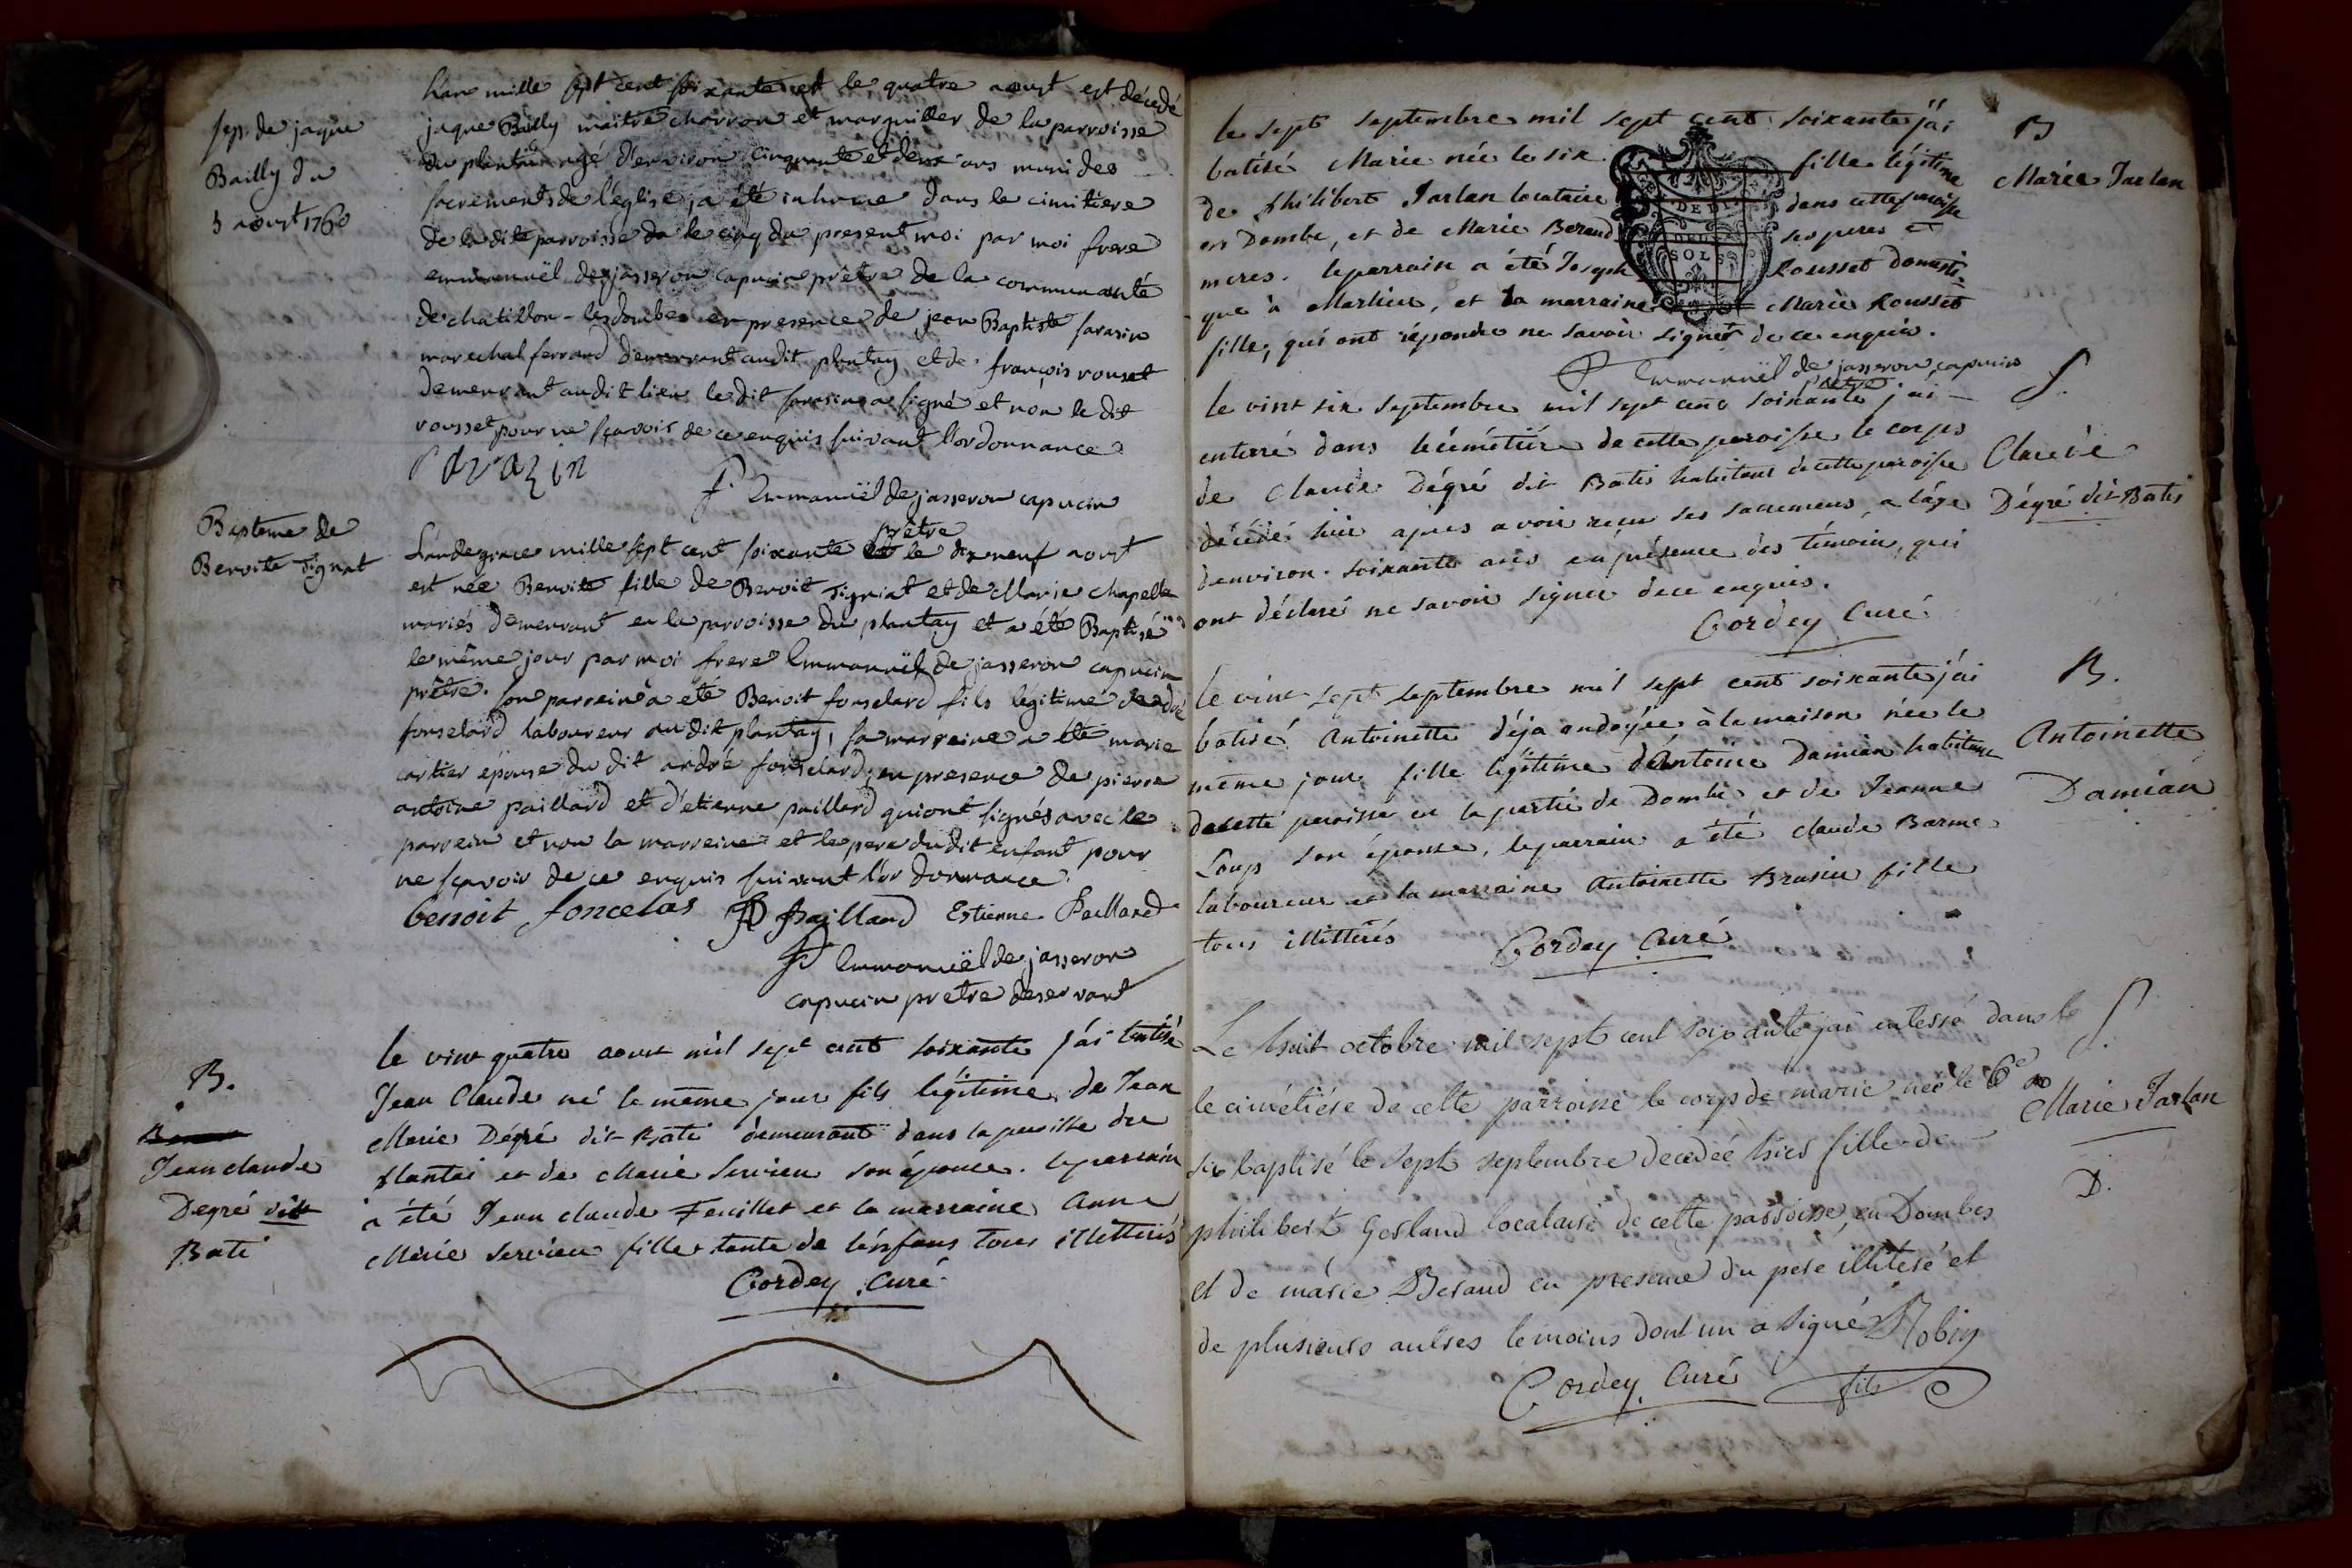 Sep. de jaque
Bailly du
5 aoust 1760
L'an mille sept cent soixante et le quatre aoust est décedé
jaque Bailly maitre charron et marguiller de la parroisse
du plantay agé d'environ cinquante et deux ans muni des
sacrements de l'église, ja été inhumé dans le cimitiere
de la dite parroisse le cinq du present moi par moi frere
emmanuël de jasseron capucin prêtre de la communauté
de chatillon-les dombes en presence de jean Baptiste sarasin
marechal ferrand demeurant audit plantay et de françois rouset
demeurant audit lieu le dit sarasin a signé et non le dit
rousset pour ne sçavoir de ce enquis suivant l'ordonnance
Sarazin
f. Emmanuël de jasseron capucin
prêtre
Bapteme de
Benoite Tignat
L'an de grace mille sept cent soixante et le dix neuf aoust
est née Benoite fille de Benoit Tigniat et de Marie chapelle
mariés demeurant en la parroisse du plantay et a été Baptisé
le même jour par moi frere Emmanuël de jasseron capucin
prêtre. son parrein a été Benoit fonselard fils légitime d'andré
fonselard laboureur au dit plantay, sa marreine a été marie
cartier épouse du dit andré fonselard, en presence de pierre
antoine paillard et d'etienne paillard qui ont signés avec le
parrein et non la marreine et le pere du dit enfant pour
ne sçavoir de ce enquis suivant l'ordonnance.
benoit foncelas P Paillard Estienne Paillard
F Emmanuël de jasseron
capucin pretre deservant
B.
Jean claude
Degré dit
Bati
le vint quatre aout mil sept cent soixante j'ai batisé
Jean Claude né le même jour fils légitime de Jean
Marie Dégré dit Bati demeurant dans la paroisse du
Plantai et de Marie Servieu son épouse. le parrain
a été Jean claude Feuillet et la marraine Anne
Marie Servieu fille tante de l'enfant tous illettrés
Cordey Curé
le sept septembre mil sept cent soixante j'ai
batisé Marie née le six fille légitime
de Philibert Jarlan locataire dans cette paroisse
en Dombe, et de Marie Beraud ses peres et
meres. le parrain a été Joseph Rousset domesti
que à Marlieu, et la marraine Marie Rousset
fille, qui ont répondu ne savoir signer de ce enquis.
F Emmanuël de jasseron capucin
prêtre
B
Marie Jarlan
DE DI
DEUX
SOLS
le vint six septembre mil sept cent soixante j'ai
enterré dans le cémétière de cette paroisse le corps
de Claude Dégré dit Batis habitant de cette paroisse
décédé hier apres avoir reçu ses sacremens, a l'age
d'environ soixante ans en présence des témoins, qui
ont déclaré ne savoir signer de ce enquis.
Cordey Curé
S.
Claude
Dégré dit Batis
le vint sept septembre mil sept cent soixante j'ai
batisé Antoinette déja ondoyée à la maison née le
même jour fille légitime d'Antoine Damian habitant
de cette paroisse en la partie de Dombe et de Jeanne
Loup son épouse, le parrain a été claude Barme
laboureur et la marraine Antoinette Brasier fille
tous illettrés Cordey Curé
B.
Antoinette
Damian
Le huit octobre mil sept cent soixante jai enterré dans le
le cimétiére de cette parroisse le corps de marie née le 6e
six baptisé le sept septembre decedée hier fille de
philibert Gerland locataire de cette parroisse, en Dombes
et de marie Beraud en presence du pere illiteré et
de plusieurs autres temoins dont un a signé Robin
Cordey Curé fils
S.
Marie Jarlan
D.